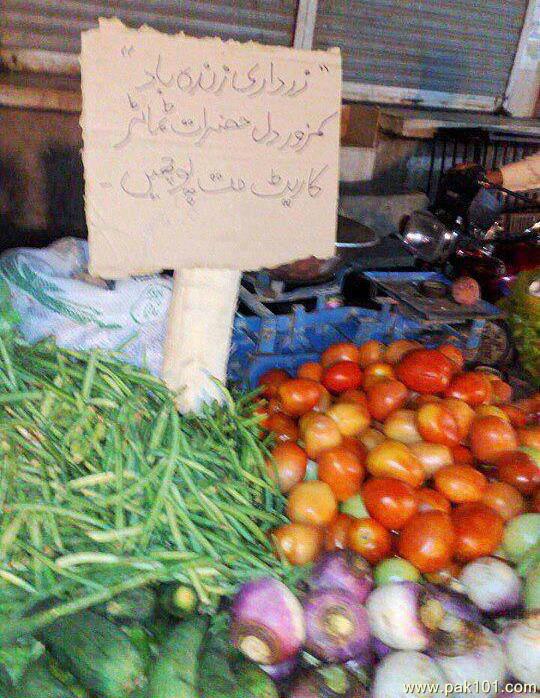 "زرداری زندہ باد"
کمزور دل حضرات ٹماٹر
کا ریٹ مت پوچھیں -
www.pak101.com